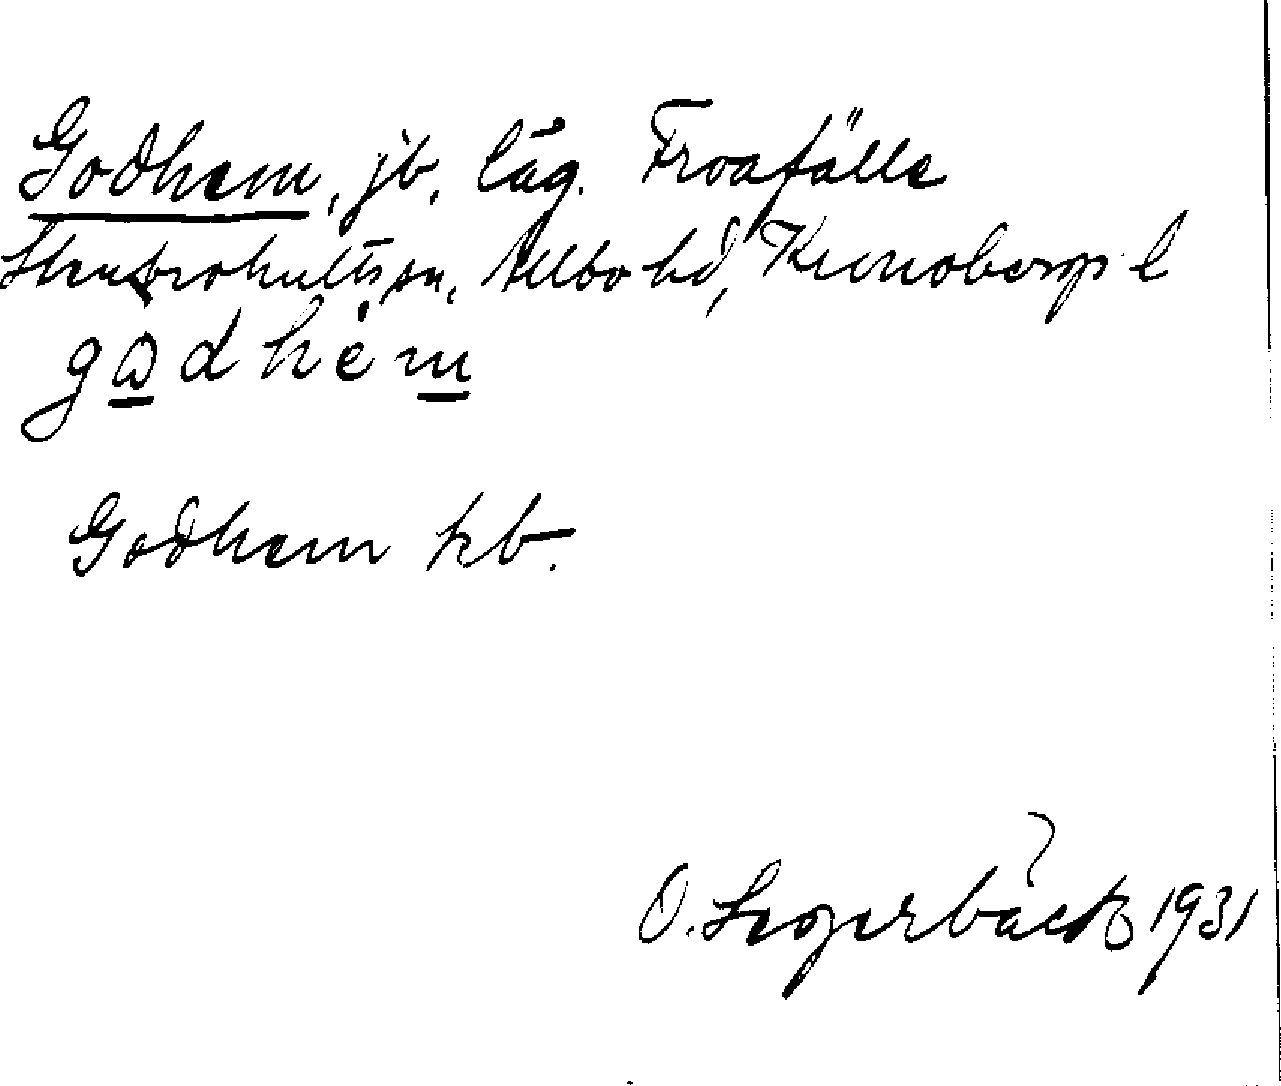 Godhem, jb, läg. Froafälle
Stenbrohults sn, Allbo hd, Kronobergs l
gωdhem
Godhem kb.
O. Segerbäck 1931